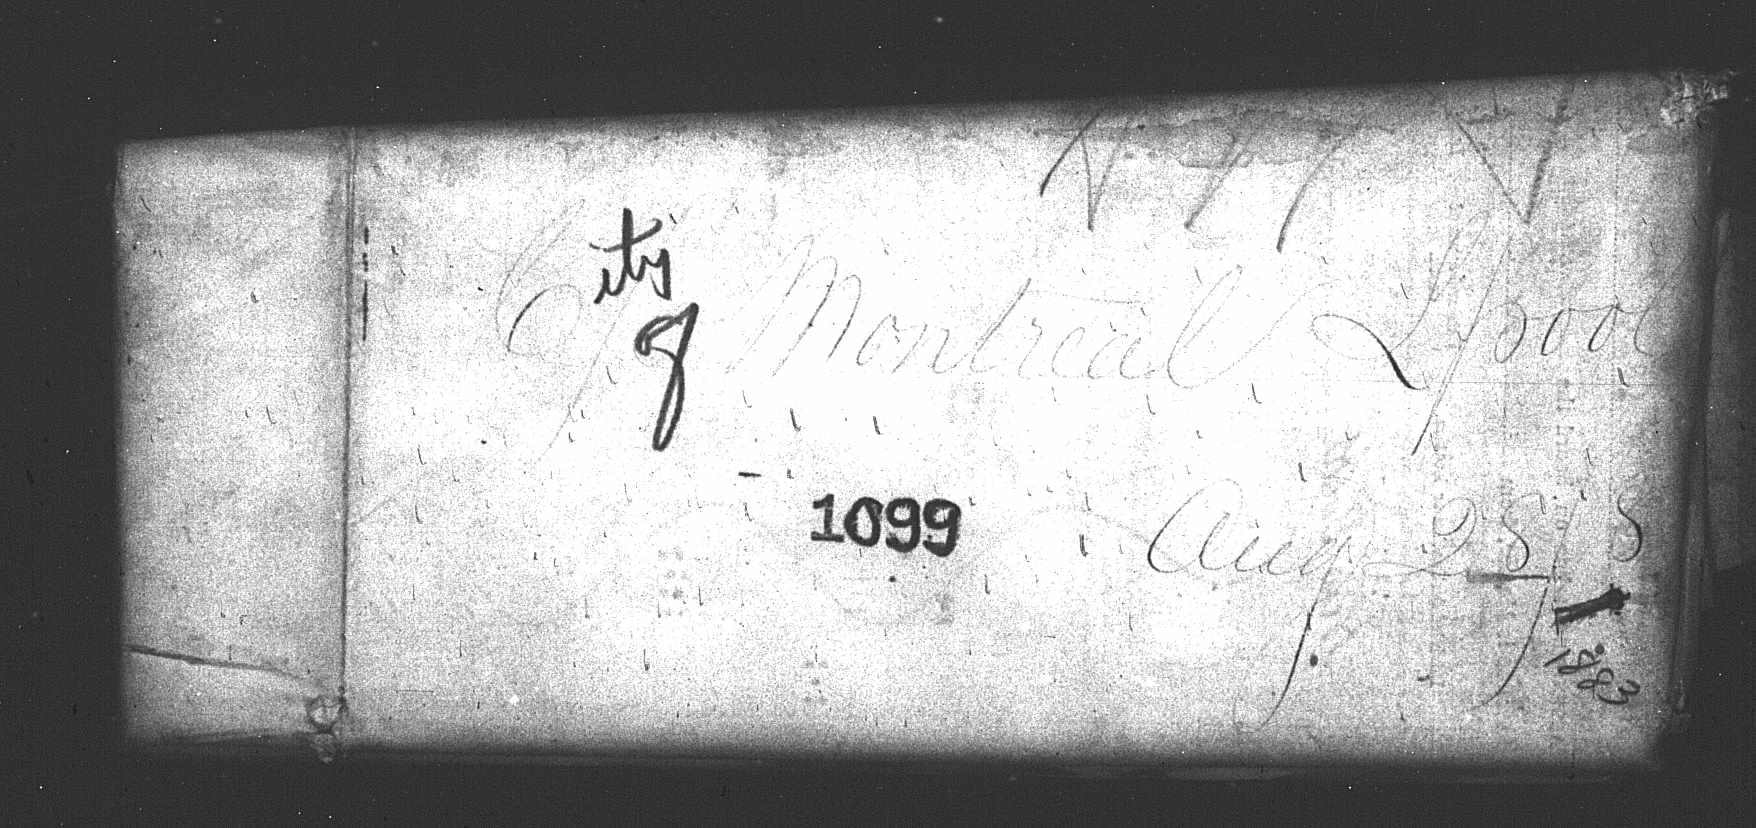 City of Montreal L'pool
1099
Aug 25/8
1
1883